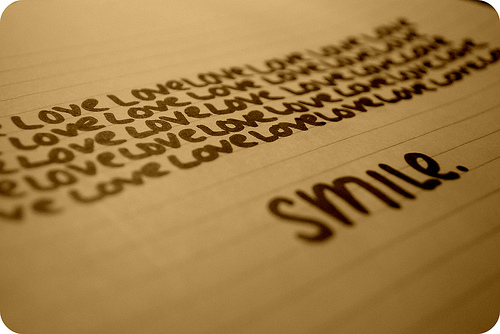 LOVE LOVE LOVE LOVE LOVE LOVE
LOVE LOVE LOVE LOVE LOVE LOVE
LOVE LOVE LOVE LOVE LOVE LOVE
LOVE LOVE LOVE LOVE LOVE LOVE LOVE
LOVE LOVE LOVE LOVE LOVE LOVE LOVE
SMILe.